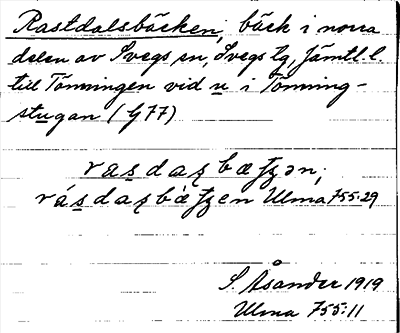 Rastdalsbäcken, bäck i norra
delen av Svegs sn, Svegs tg, Jämtl. l.
till Tönningen vid u i Tönning-
stugan (G77)
rasdaʂbæʈʂən;
rásdaʂbæ̀ʈʂen Ulma 755:29
S. Åsander 1919
Ulma 755:11